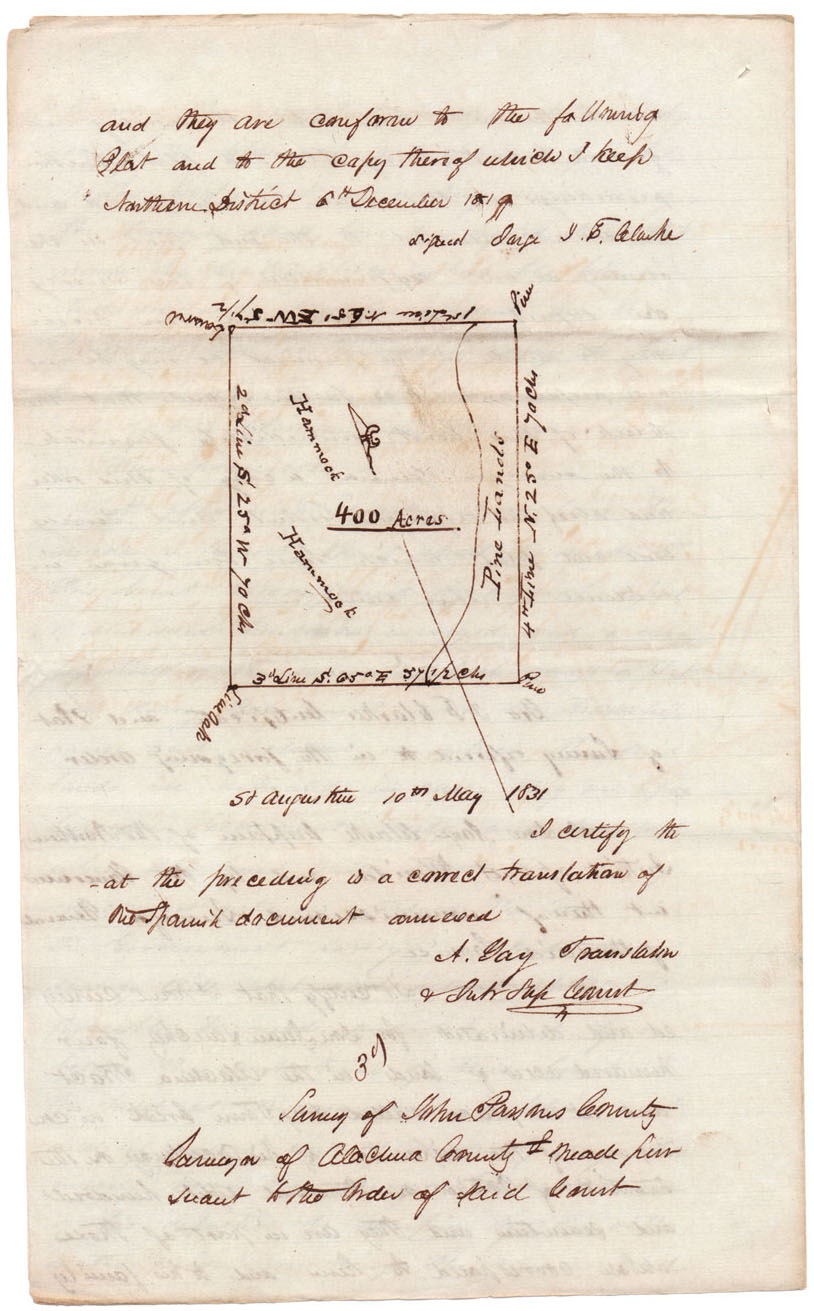 and they are conforme to the following
Plat and to the copy thereof which I keep
Northern District 6th December 1819
signed Jorge J. F. Clarke
Pine
1st Line N. 65° W 57 1/2
2d Line S. 25° W 70 Chs
Hammock
400 Acres
Hammock
Pine Lands
4th Line N. 25° E 70 Chs
3d Line S. 65° E 57 1/2 Chs
Live Oak
Pine
St Augustine 10th May 1831
I certify th
-at the preceding is a correct translation of
the Spanish document annexed
A. Gay Translator
& Intr Sup Court
3d
Survey of John Parsons County
Surveyor of Alachua County & made pur
suant to the Order of said Court